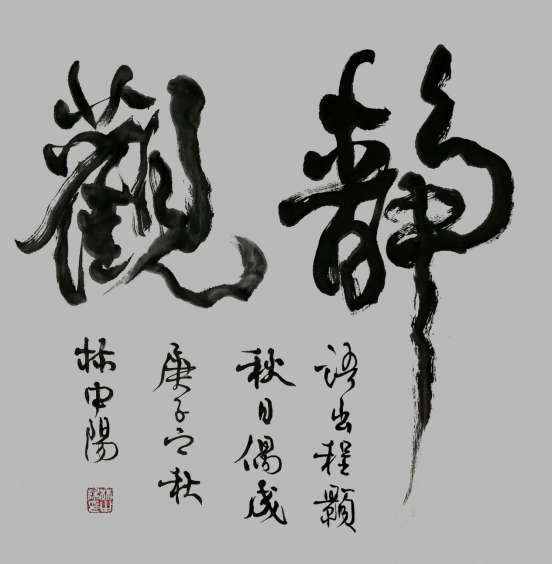 靜觀
語出程顥
秋日偶成
庚子之秋
林中陽